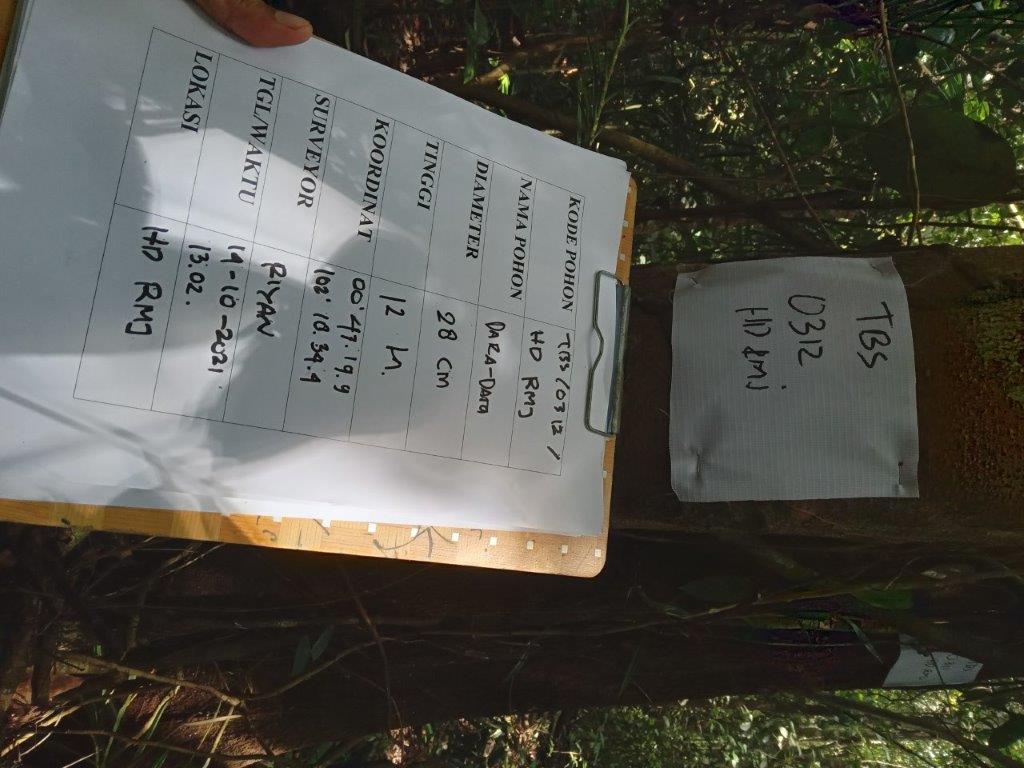 TBS
0312
HD RMJ
TBS
0312
HD RMJ
KODE POHON
TBS/0312/
HD RMJ
NAMA POHON
DARA-DARA
DIAMETER
28 CM
TINGGI
12 M.
KOORDINAT
00°47.19.9
102° 10.34.4
SURVEYOR
RIYAN
TGL/WAKTU
19-10-2021
13.02.
LOKASI
HD RMJ